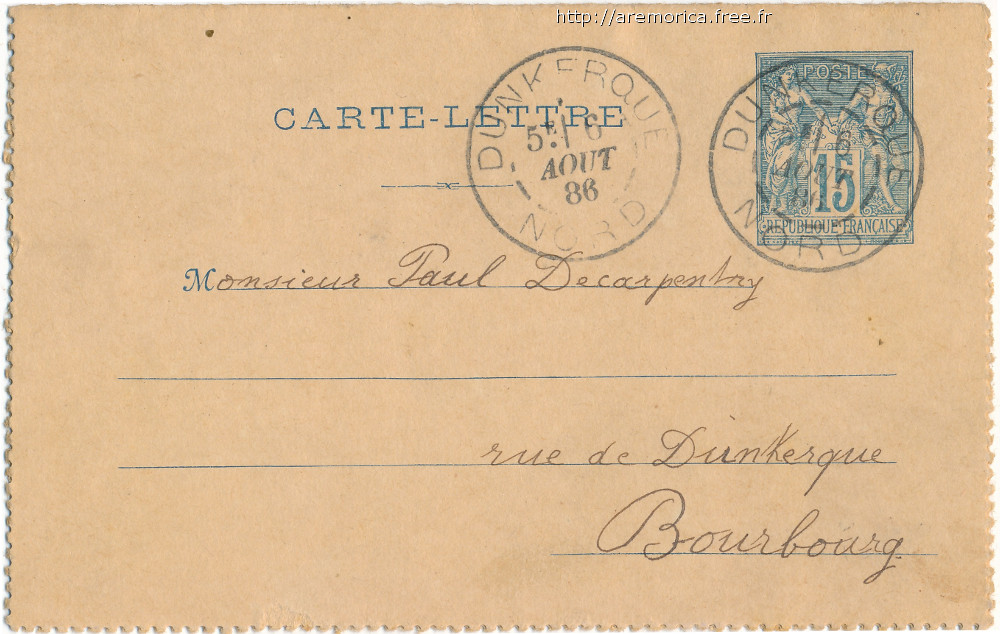 http://aremorica.free.fr
POSTES
CARTE-LETTRE
DUNKERQUE
5E 6
AOUT
86
NORD
DUNKERQUE
6
AOUT
86
NORD
15
REPUBLIQUE FRANÇAISE
Monsieur Paul Decarpentry
rue de Dunkerque
Bourbourg